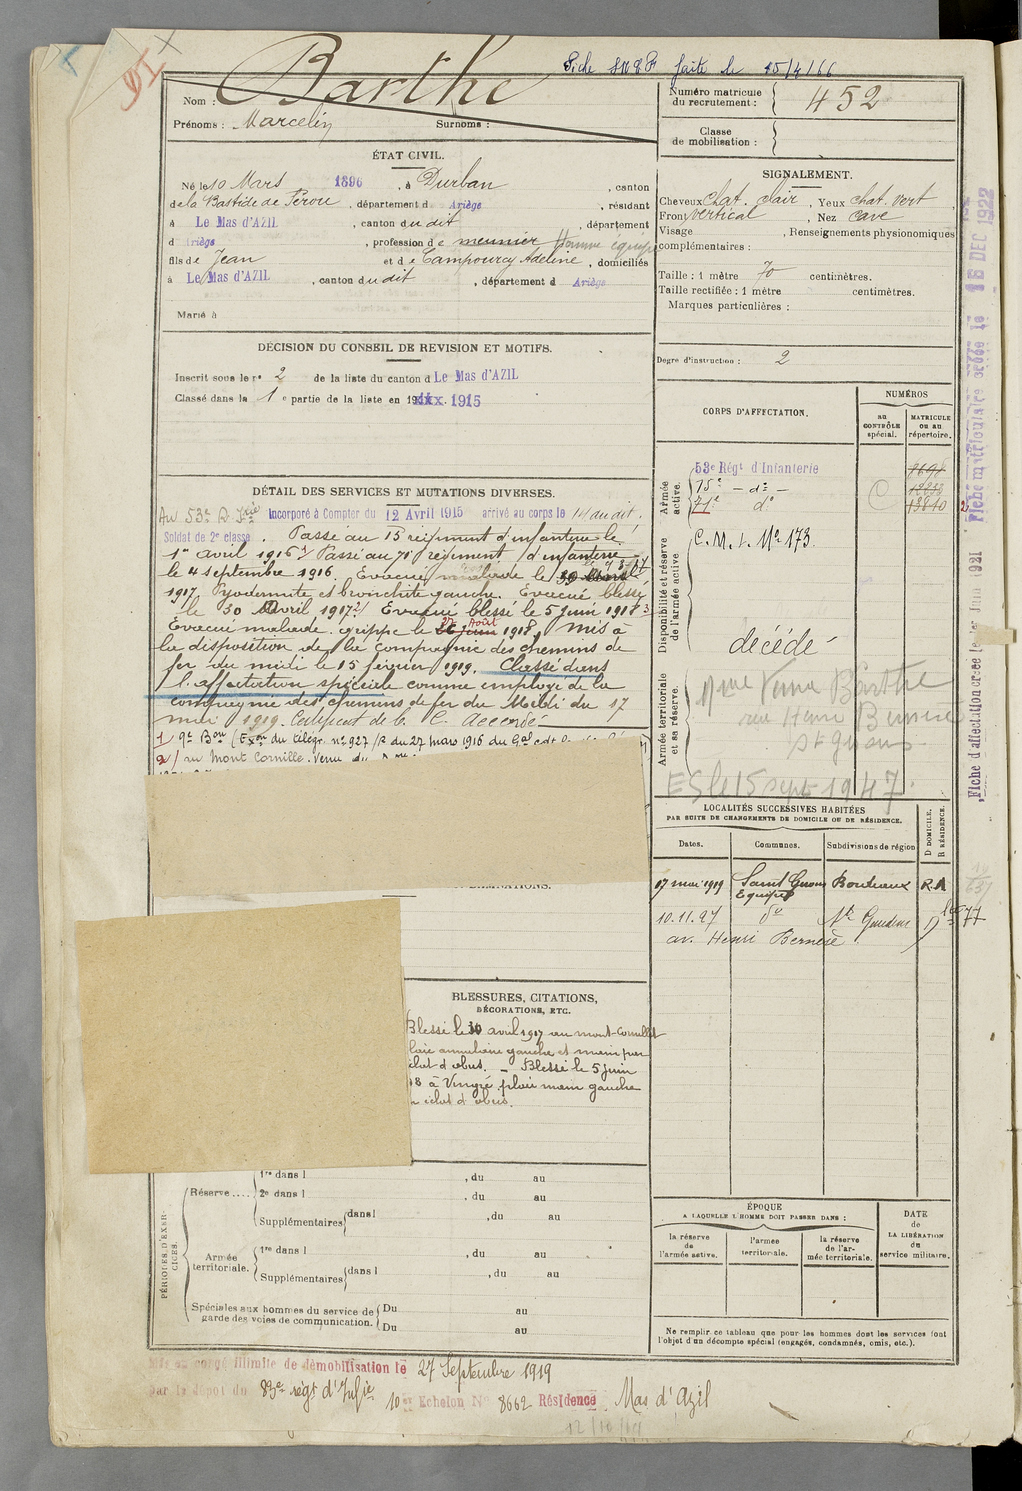 Fiche SNCF faite le 15/4/66
91
Nom : Barthe
Prénoms : Marcelin Surnoms :
Numéro matricule
du recrutement : 452
Classe
de mobilisation :
ÉTAT CIVIL.
Né le 10 Mars 1896, à Durban, canton
de la Bastide de Sérou, département d Ariège, résidant
à Le Mas d'AZIL, canton dudit, département
d Ariège, profession de meunier Homme équipe
fils de Jean et de Campourcy Adeline, domiciliés
à Le Mas d'AZIL, canton dudit, département d Ariège
Marié à
SIGNALEMENT.
Cheveux chat. clair, Yeux chat. vert,
Front vertical, Nez cave
Visage, Renseignements physionomiques
complémentaires :
Taille : 1 mètre 70 centimètres.
Taille rectifiée : 1 mètre centimètres.
Marques particulières :
DÉCISION DU CONSEIL DE REVISION ET MOTIFS.
Inscrit sous le n° 2 de la liste du canton d Le Mas d'AZIL
Classé dans la 1e partie de la liste en 1915
Degré d'instruction : 2
CORPS D'AFFECTATION.
NUMÉROS
au
CONTRÔLE
spécial.
MATRICULE
OU AU
répertoire.
Armée
active.
53e Régt d'Infanterie
15e - do -
71e do
Disponibilité et réserve
de l'armée active.
C.M.I. No 173.
décédé
Armée territoriale
et sa réserve.
Mme Barthe
rue Henri
St Girons
ES le 15 sept 1947.
DÉTAIL DES SERVICES ET MUTATIONS DIVERSES.
Au 53e R. Incorporé à Compter du 12 Avril 1915 arrivé au corps le 14 dudit.
Soldat de 2e classe. Passé au 15 régiment d'infanterie le
1er avril 1916 1/ Passé au 71e régiment d'infanterie
le 4 septembre 1916. Evacué malade le
1917 Pyodermite et bronchite gauche. Evacué blessé
le 30 Avril 1917 2/ Evacué blessé le 5 juin 1918 3
Evacué malade grippe le 27 Août 1918, Mis à
la disposition de la compagnie des chemins de
fer du midi le 15 février 1919. Classé dans
l'affectation spéciale comme employé de la
compagnie des chemins de fer du Midi du 17
mai 1919. Certificat de b. C. Accordé
1/ Qt Bon (Exon du télégr. no 927/R du 27 mars 1916 du Gal cdt
2/ au Mont Cornille.
LOCALITÉS SUCCESSIVES HABITÉES
PAR SUITE DE CHANGEMENTS DE DOMICILE OU DE RÉSIDENCE.
Dates. Communes. Subdivisions de région
D DOMICILE.
R RÉSIDENCE.
17 mai 1919 Saint Girons Bordeaux R.
Equipe
10.11.27 do St Gaudens D
av. Henri Bernère
BLESSURES, CITATIONS,
DÉCORATIONS, ETC.
Blessé le 30 avril 1917 au mont-Cornillet
plaie annulaire gauche et main par
éclat d'obus. - Blessé le 5 juin
18 à Vingré plaie main gauche
éclat d'obus.
PÉRIODES D'EXER-
CICES.
Réserve .... 1re dans l, du au
2e dans l, du au
Supplémentaires dans l, du au
Armée
territoriale.
1re dans l, du au
Supplémentaires dans l, du au
Spéciales aux hommes du service de
garde des voies de communication.
Du au
Du au
ÉPOQUE
A LAQUELLE L'HOMME DOIT PASSER DANS :
la réserve
de
l'armée active.
l'armée
territoriale.
la réserve
de l'ar-
mée territoriale.
DATE
de
LA LIBÉRATION
du
service militaire.
Ne remplir ce tableau que pour les hommes dont les services font
l'objet d'un décompte spécial (engagés, condamnés, omis, etc.).
Mis en congé illimité de démobilisation le 27 Septembre 1919
par le dépôt du 83e régt d'Infie 10er Echelon No 8662 Résidence Mas d'Azil
Fiche matriculaire créée le 16 DEC 1922
Fiche d'affectation créée le 1er Juin 1921